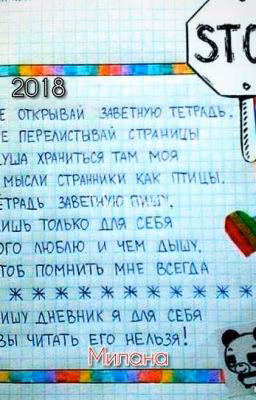 STO
2018
Е ОТКРЫВАЙ ЗАВЕТНУЮ ТЕТРАДЬ.
Е ПЕРЕЛИСТЫВАЙ СТРАНИЦЫ
УША ХРАНИТЬСЯ ТАМ МОЯ
МЫСЛИ СТРАННИКИ КАК ПТИЦЫ.
ЕТРАДЬ ЗАВЕТНУЮ ПИШУ.
ИШЬ ТОЛЬКО ДЛЯ СЕБЯ
ОГО ЛЮБЛЮ И ЧЕМ ДЫШУ.
ТОБ ПОМНИТЬ МНЕ ВСЕГДА
ИШУ ДНЕВНИК Я ДЛЯ СЕБЯ
ВЫ ЧИТАТЬ ЕГО НЕЛЬЗЯ!
Милана